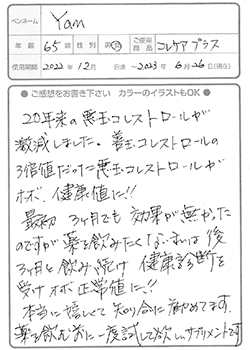 ペンネーム Yam
年齢 65歳 性別 男・女 ご使用商品 コレケアプラス
使用期間 2022年12月 日頃 ~2023年6月26日(現在)
●ご感想をお書き下さい カラーのイラストもOK●
20年来の悪玉コレストロールが
激減しました。善玉コレストロールの
3倍値だった悪玉コレストロールが
ホボ、健康値に!!
最初 3ヶ月でも効果が無かった
のですが薬を飲みたくなく、あまは後
3ヶ月と飲み続け健康診断を
受けホボ正常値に!!
本当に嬉しくて知り合に薦めてます。
薬を飲む前に一度試して欲しいサプリメントです